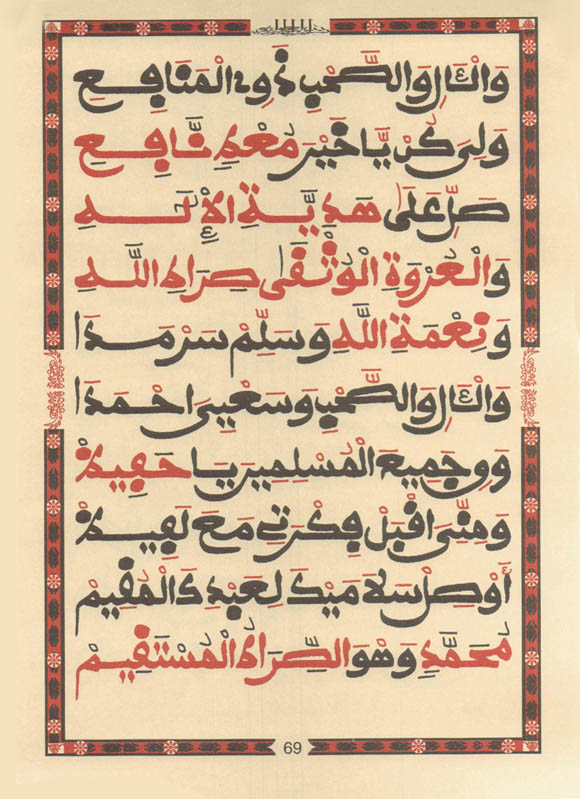 وَالْآلِ وَالصَّحْبِ ذَوِي الْمَنَافِعِ
وَلِي كُنْ يَّا خَيْرَ مُعْطٍ نَّافِعِ
صَلِّ عَلَى هَدِيَّةِ الْإِلَهِ
وَالْعُرْوَةِ الْوُثْقَى صِرَاطِ اللَّهِ
وَنِعْمَةِ اللَّهِ وَسَلِّمْ سَرْمَدَا
وَالْآلِ وَالصَّحْبِ وَسَعْيِيَ احْمَدَا
وَقِ جَمِيعَ الْمُسْلِمِينَ يَا حَفِيظْ
وَمِنِّيَ اقْبَلْ فِكْرَتِي مَعَ لَفِيظْ
أَوْصِلْ سَلَامَيْكَ لِعَبْدِكَ الْمُقِيمْ
مُحَمَّدٍ وَهْوَ الصِّرَاطُ الْمُسْتَقِيمْ
69